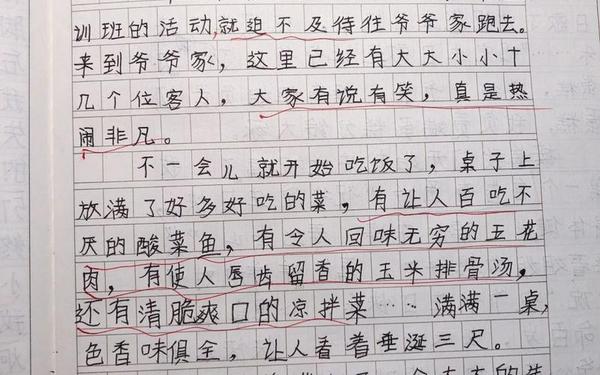 训班的活动,就迫不及待往爷爷家跑去。
来到爷爷家，这里已经有大大小小十
几个位客人，大家有说有笑，真是热
闹非凡。
不一会儿就开始吃饭了，桌子上
放满了好多好吃的菜，有让人百吃不
厌的酸菜鱼，有令人回味无穷的五花
肉，有使人唇齿留香的玉米排骨汤，
还有清脆爽口的凉拌菜……满满一桌，
色香味俱全，让人看着垂涎三尺。